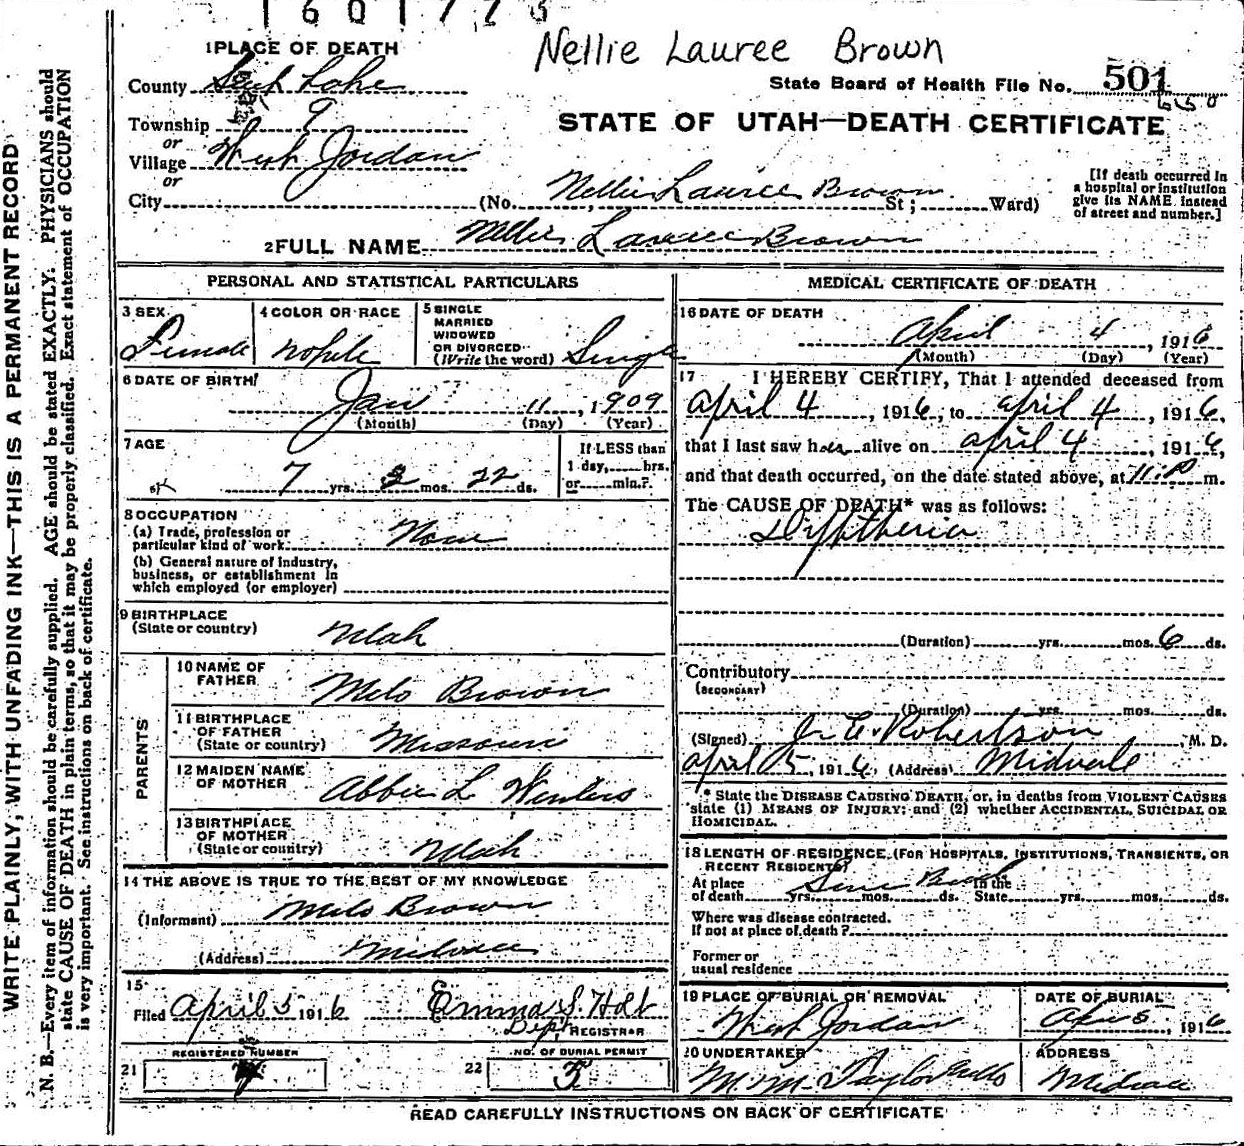 1601773
Nellie Lauree Brown
1 PLACE OF DEATH
County Salt Lake
State Board of Health File No. 501
650
Township 9
or
Village West Jordan
or
City
STATE OF UTAH—DEATH CERTIFICATE
(No. Nellie Lauree Brown St; Ward)
[If death occurred in
a hospital or institution
give its NAME instead
of street and number.]
2 FULL NAME Nellie Lauree Brown
PERSONAL AND STATISTICAL PARTICULARS
3 SEX
Female
4 COLOR OR RACE
white
5 SINGLE
MARRIED
WIDOWED
OR DIVORCED
(Write the word) Single
6 DATE OF BIRTH
Jan 11, 1909
(Month) (Day) (Year)
7 AGE
7 yrs. 3 mos. 22 ds.
If LESS than
1 day, hrs.
or min.?
8 OCCUPATION
(a) Trade, profession or
particular kind of work None
(b) General nature of industry,
business, or establishment in
which employed (or employer)
9 BIRTHPLACE
(State or country) Utah
PARENTS
10 NAME OF
FATHER Milo Brown
11 BIRTHPLACE
OF FATHER
(State or country) Missouri
12 MAIDEN NAME
OF MOTHER Abbie L Winters
13 BIRTHPLACE
OF MOTHER
(State or country) Utah
14 THE ABOVE IS TRUE TO THE BEST OF MY KNOWLEDGE
(Informant) Milo Brown
(Address) Midvale
15
Filed April 5 1916 Emma S. Holt
Dept REGISTRAR
REGISTERED NUMBER
21
NO. OF BURIAL PERMIT
22 5
MEDICAL CERTIFICATE OF DEATH
16 DATE OF DEATH
April 4, 1916
(Month) (Day) (Year)
17 I HEREBY CERTIFY, That I attended deceased from
April 4, 1916, to April 4, 1916,
that I last saw her alive on April 4, 1916,
and that death occurred, on the date stated above, at 11:10 m.
The CAUSE OF DEATH* was as follows:
Diphtheria
(Duration) yrs. mos. 6 ds.
Contributory
(SECONDARY)
(Duration) yrs. mos. ds.
(Signed) Robertson, M. D.
April 5, 1916, (Address) Midvale
* State the DISEASE CAUSING DEATH, or, in deaths from VIOLENT CAUSES
state (1) MEANS OF INJURY; and (2) whether ACCIDENTAL, SUICIDAL OR
HOMICIDAL.
18 LENGTH OF RESIDENCE (FOR HOSPITALS, INSTITUTIONS, TRANSIENTS, OR
RECENT RESIDENTS)
At place Since Birth In the
of death yrs. mos. ds. State yrs. mos. ds.
Where was disease contracted.
If not at place of death?
Former or
usual residence
19 PLACE OF BURIAL OR REMOVAL
West Jordan
DATE OF BURIAL
Apr 5, 1916
20 UNDERTAKER
M. M. Taylor
ADDRESS
Midvale
READ CAREFULLY INSTRUCTIONS ON BACK OF CERTIFICATE
WRITE PLAINLY, WITH UNFADING INK—THIS IS A PERMANENT RECORD
N. B.—Every item of information should be carefully supplied. AGE should be stated EXACTLY. PHYSICIANS should
state CAUSE OF DEATH in plain terms, so that it may be properly classified. Exact statement of OCCUPATION
is very important. See instructions on back of certificate.